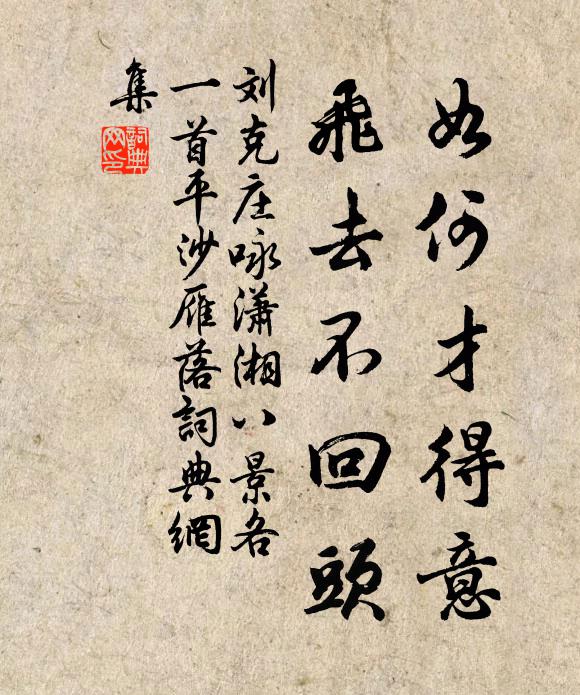 如何才得意
飛去不回頭
刘克庄咏瀟湘八景各
一首平沙雁落詞典網
集
詞典
网印